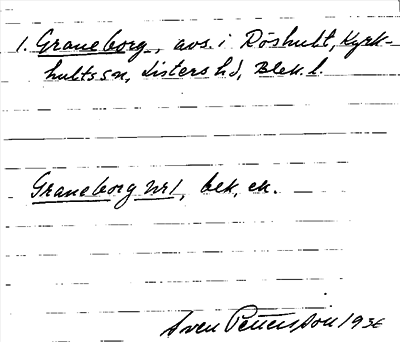 1. Graneborg, avs. i Röshult, Kyrk-
hults sn, Listers hd, Blek. l.
Graneborg Nr 1, bek, ek.
Sven Pettersson 1936